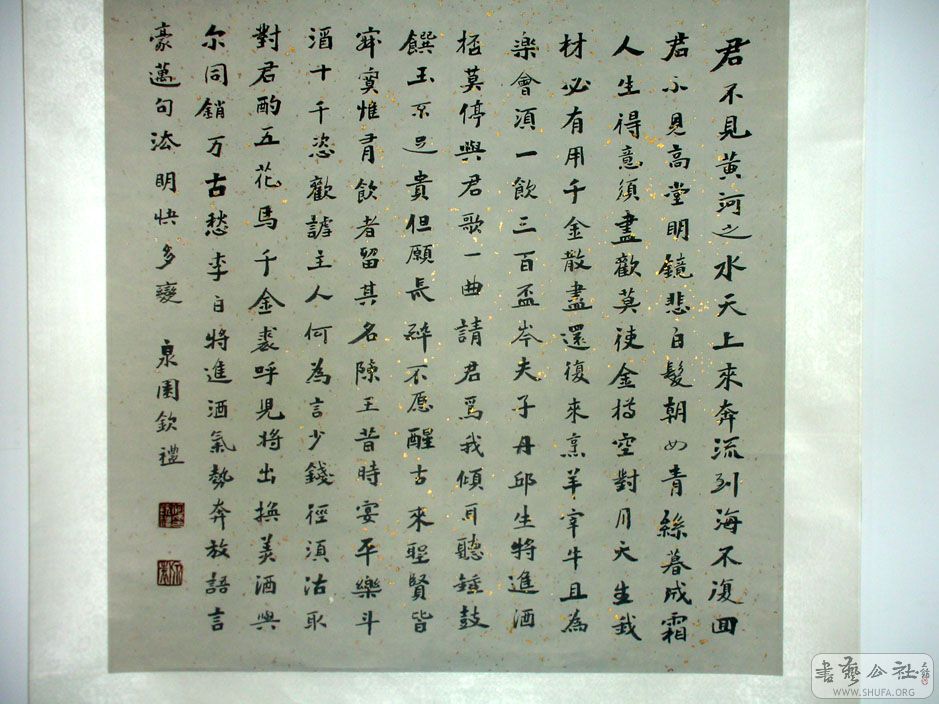 君不見黃河之水天上來奔流到海不復回
君不見高堂明鏡悲白髮朝如青絲暮成霜
人生得意須盡歡莫使金樽空對月天生我
材必有用千金散盡還復來烹羊宰牛且為
樂會須一飲三百盃岑夫子丹邱生將進酒
杯莫停與君歌一曲請君為我傾耳聽鍾鼓
饌玉不足貴但願長醉不愿醒古來聖賢皆
寂寞惟有飲者留其名陳王昔時宴平樂斗
酒十千恣歡謔主人何為言少錢徑須沽取
對君酌五花馬千金裘呼兒將出換美酒與
尔同銷万古愁李白將進酒氣勢奔放語言
豪邁句法明快多變 泉園欽禮
書藝公社
WWW.SHUFA.ORG